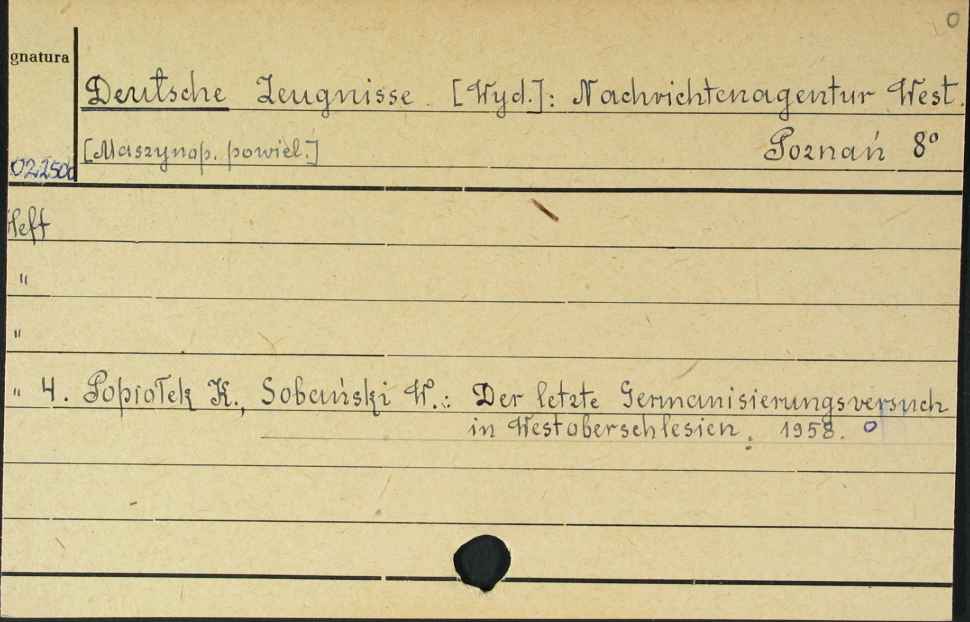 0
gnatura
Deutsche Zeugnisse. [Wyd.]: Nachrichtenagentur West.
[Maszynop. powiel.] Poznań 8°
022500
Heft
"
"
" 4. Popiołek K., Sobański W.: Der letzte Germanisierungsversuch
in Westoberschlesien. 1958. o